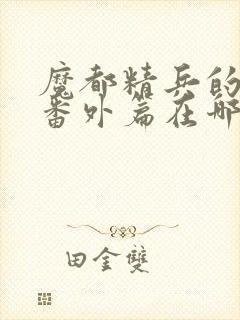 魔都精兵的
番外篇在哪
田金雙